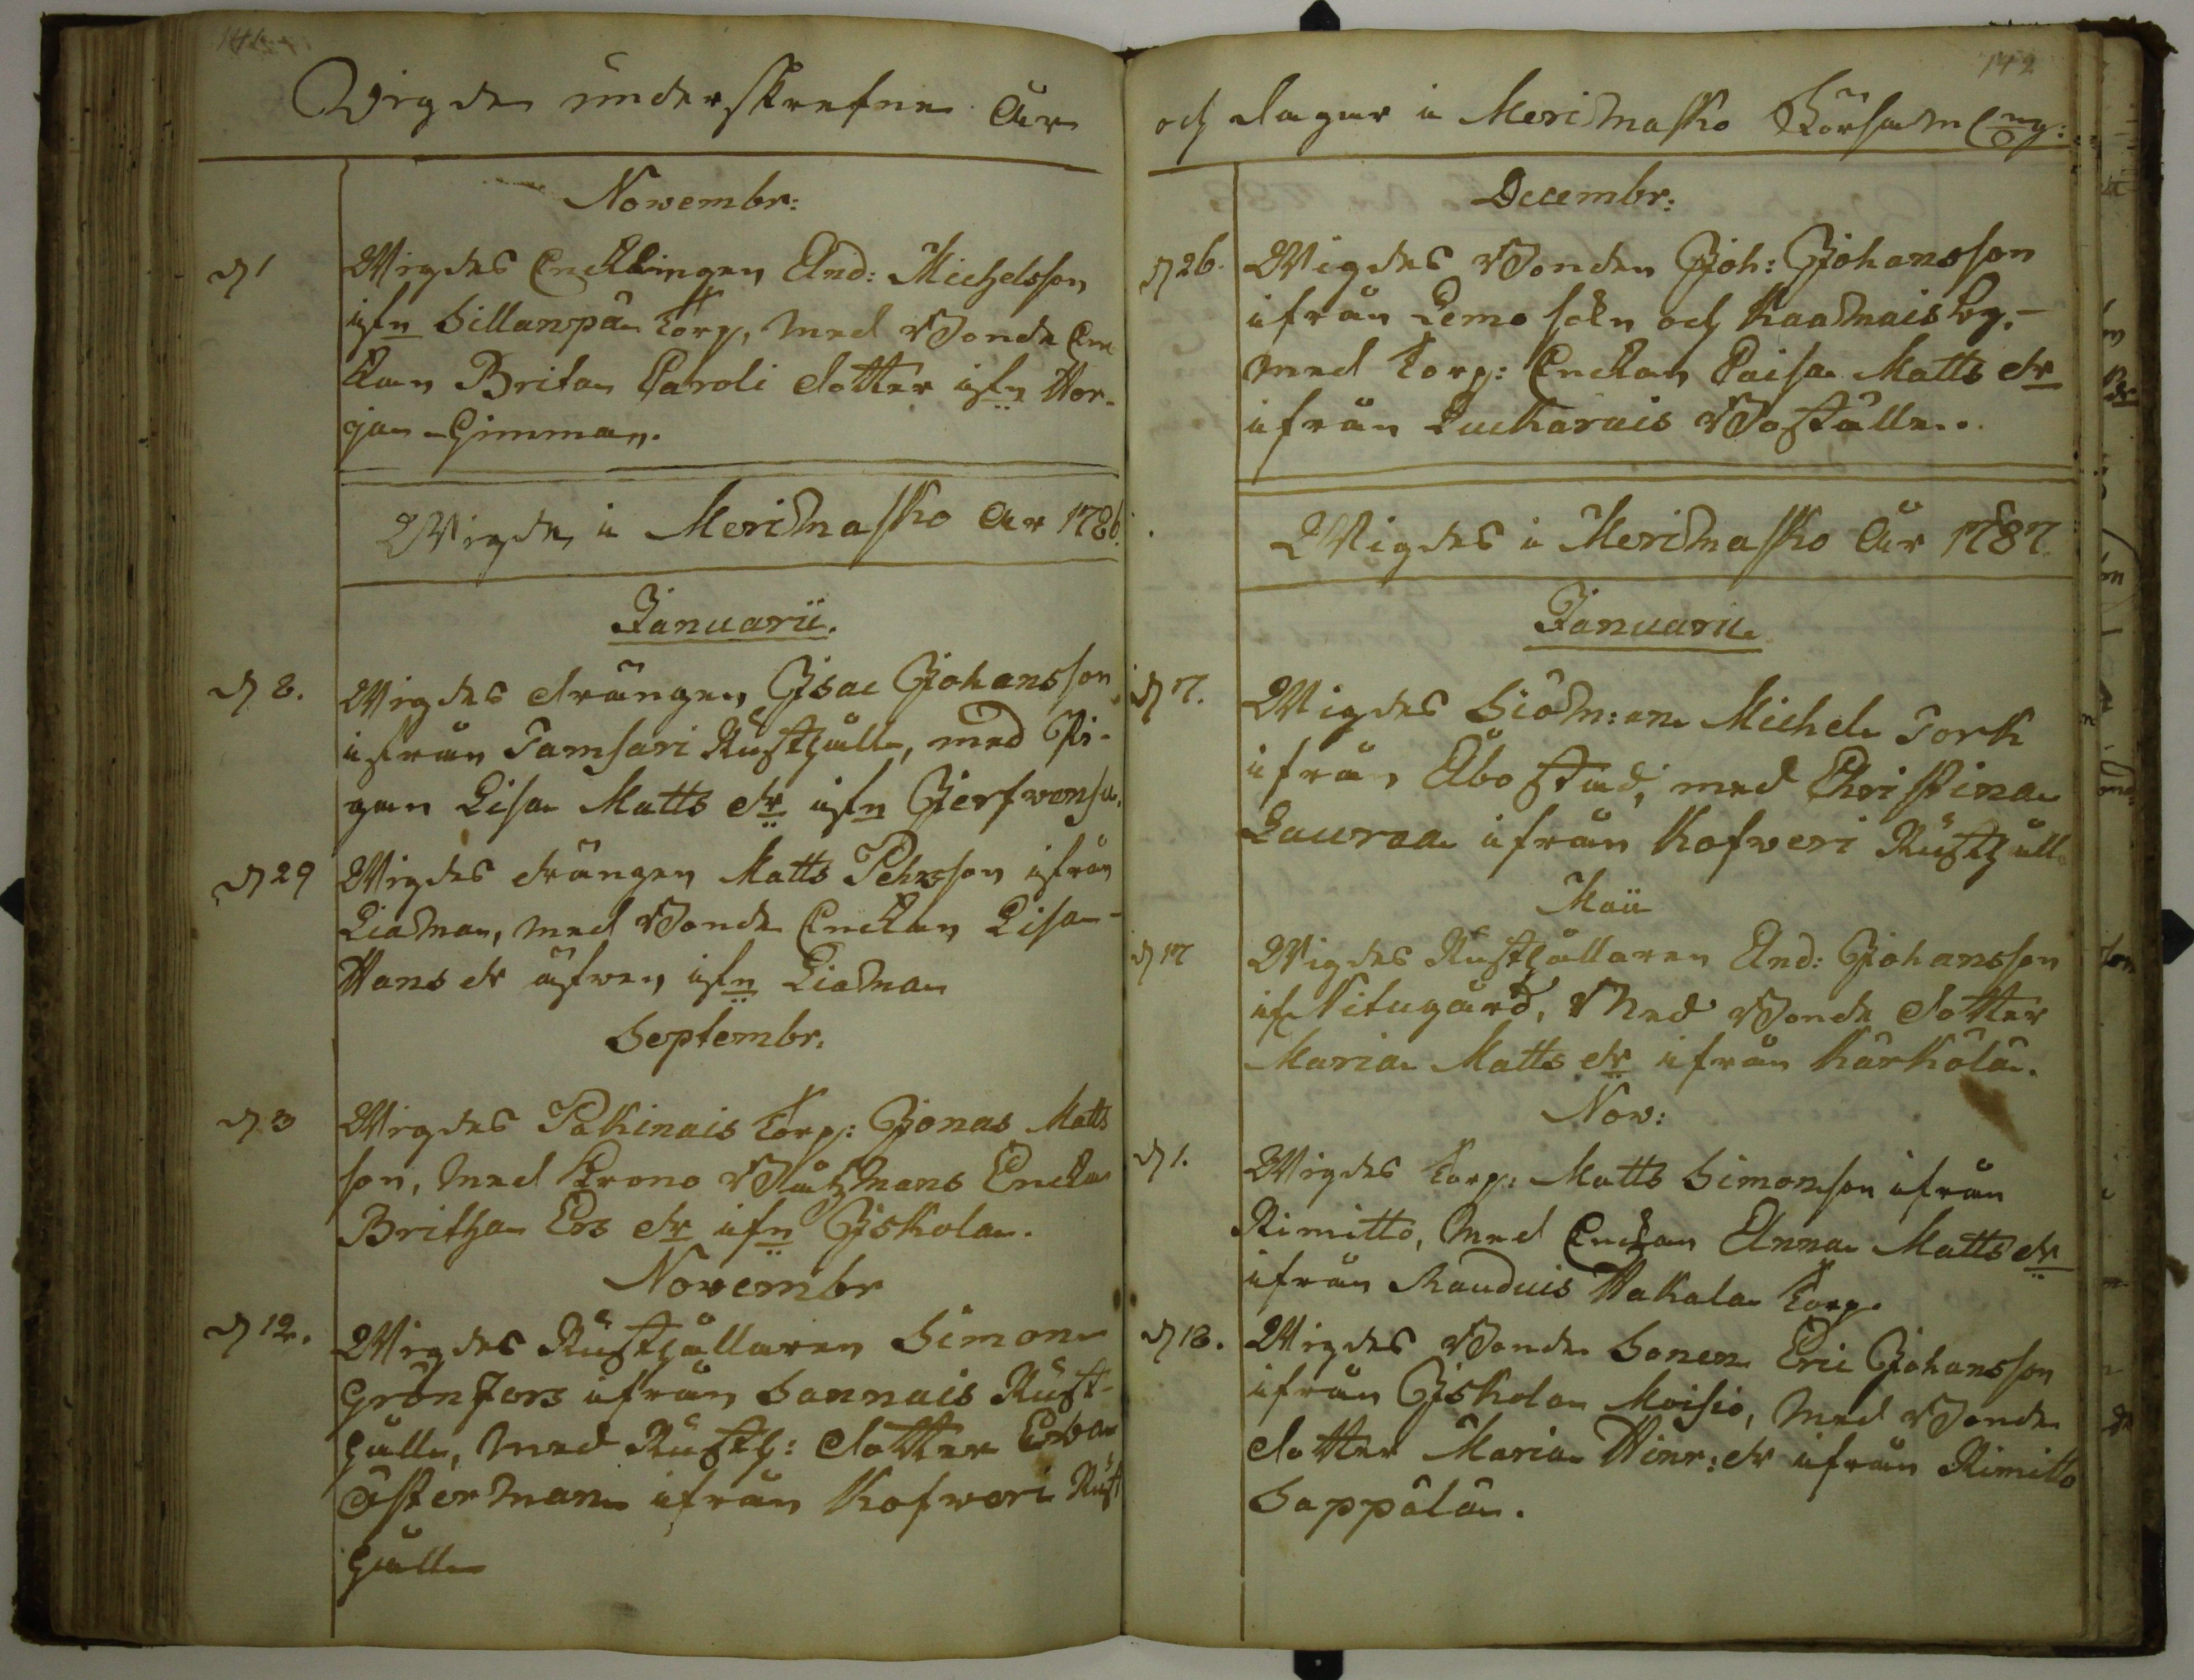 Wigde underskrefne år
Novembr:
d 1 Wigdes Encklingen And: Michelsson
ifrn Sillanpä Torp, med Bonde En
kan Brita Caroli dotter ifrn Wor-
ja-Gimman.
Wigde i Merimasko år 1786.
Januarii.
d 8. Wigdes drängen Isac Johansson
ifrån Tamsari Rusthålle, med Pi-
gan Lisa Matts dr ifrn Jerfwensu.
d 29 Wigdes drängen Matts Pehrsson ifrån
Liaman, med Bonde Enckan Lisa
Hans dr äfwen ifrn Liaman
Septembr.
d 3 Wigdes Pakinais Torp: Jonas Matts
son, med Krono Båtzmans Enckan
Britha Ers dr ifrn Iskola.
Novembr
d 12. Wigdes Rusthållaren Simon
Grönfors ifrån Sannais Rust-
hålle, med Rusth: dotter Ewa
Österman ifrån Kofweri Rust
hålle
142
och dagar i Merimasko Församl Cng:
Decembr:
d 26. Wigdes Bonden Joh: Johansson
ifrån Lemo sokn och Kaamais by,-
med Torp: Enckan Caisa Matts dr
ifrån Luckarais Boställe.
Wigdes i Merimasko år 1787
Januarii
d 7. Wigdes Siöm:an Michel Tork
ifrån Åbo stad, med Christina
Lauraa ifrån Kofweri Rusthålle
Maii
d 17 Wigdes Rusthållaren And: Johansson
if. Nitugård, Med Bonde dotter
Maria Matts dr ifrån Kärkölä.
Nov:
d 1. Wigdes Torp: Matts Simonson ifrån
Rimitto, Med Enckan Anna Matts dr
ifrån Rauduis Hakala Torp.
d 18. Wigdes Bonde Sonen Eric Johansson
ifrån Iskola Moisio, Med Bonde
dotter Maria Hinr: dr ifrån Rimitto
Seppälä.